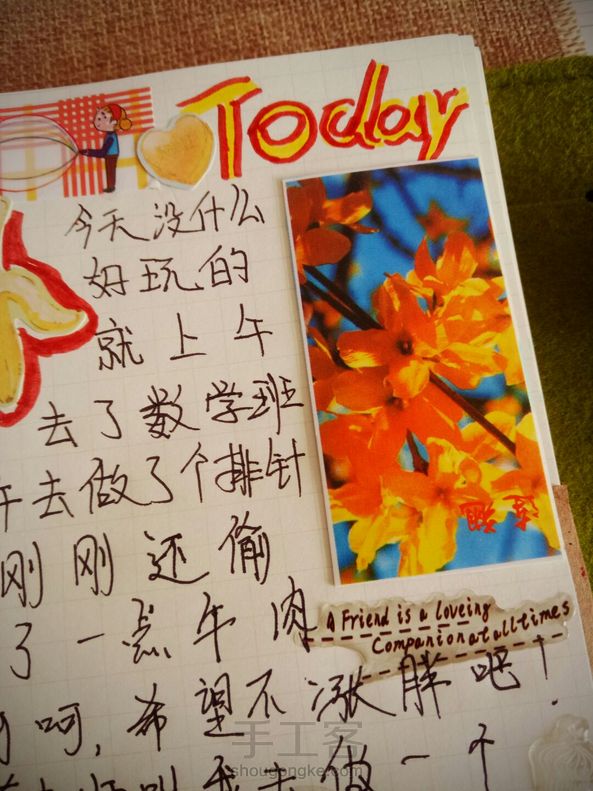 Today
今天没什么
好玩的
就上午
去了数学班
午去做了个排针
刚刚还偷
了一点牛肉
A Friend is a loveing
Companion at all times
呵,希望不涨胖吧!
叫我去做一个
手工客
shougongke.com